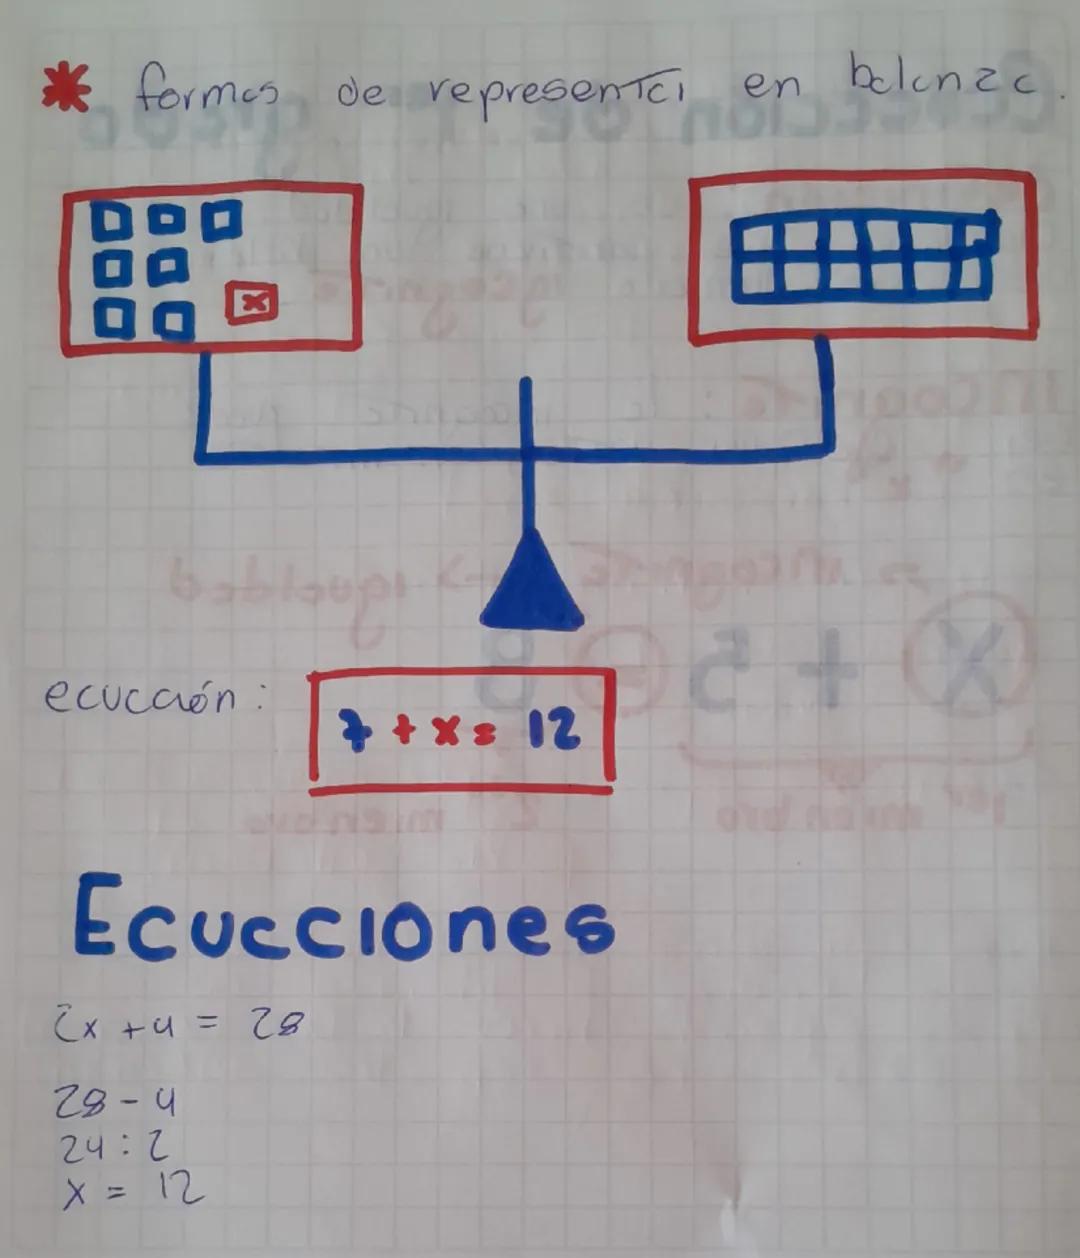 * formas de representar en balanza.
x
ecuación:
7 + x = 12
Ecuaciones
2x + 4 = 28
28 - 4
24 : 2
x = 12